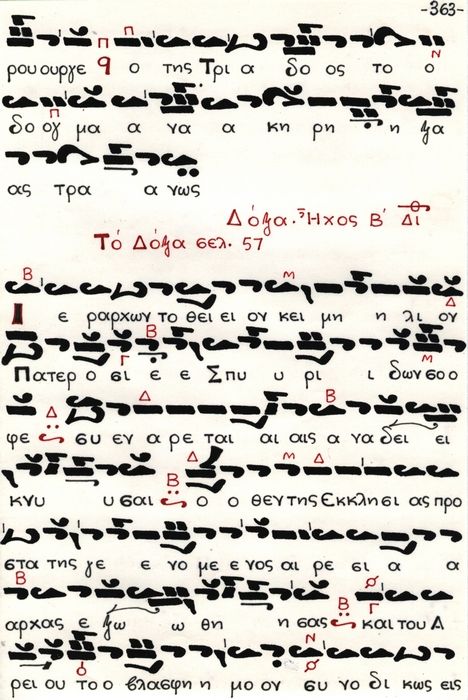 -363-
ρου ουργε ο της Τρι α δο ος το ο
δο ογ μα α να α κη ρη η ξα
ας τρα α νως
Δόξα. Ἦχος Β΄ Δι
Τό Δόξα σελ. 57
Ι ε ραρχων το θει ει ον κει μη η λι ον
Πατερ ο σι ε ε Σπυ υ ρι ι δων σο ο
φε συ εν α ρε ται αι αις α να δει ει
κνυ υ σαι ο ο θεν της Εκκλη σι ας προ
στα της γε ε νο με ε νος αι ρε σι α α
αρχας ε ξω ω θη η σας και του Α
ρει ου το ο βλασφη η μο ον συ νο δι κως εις